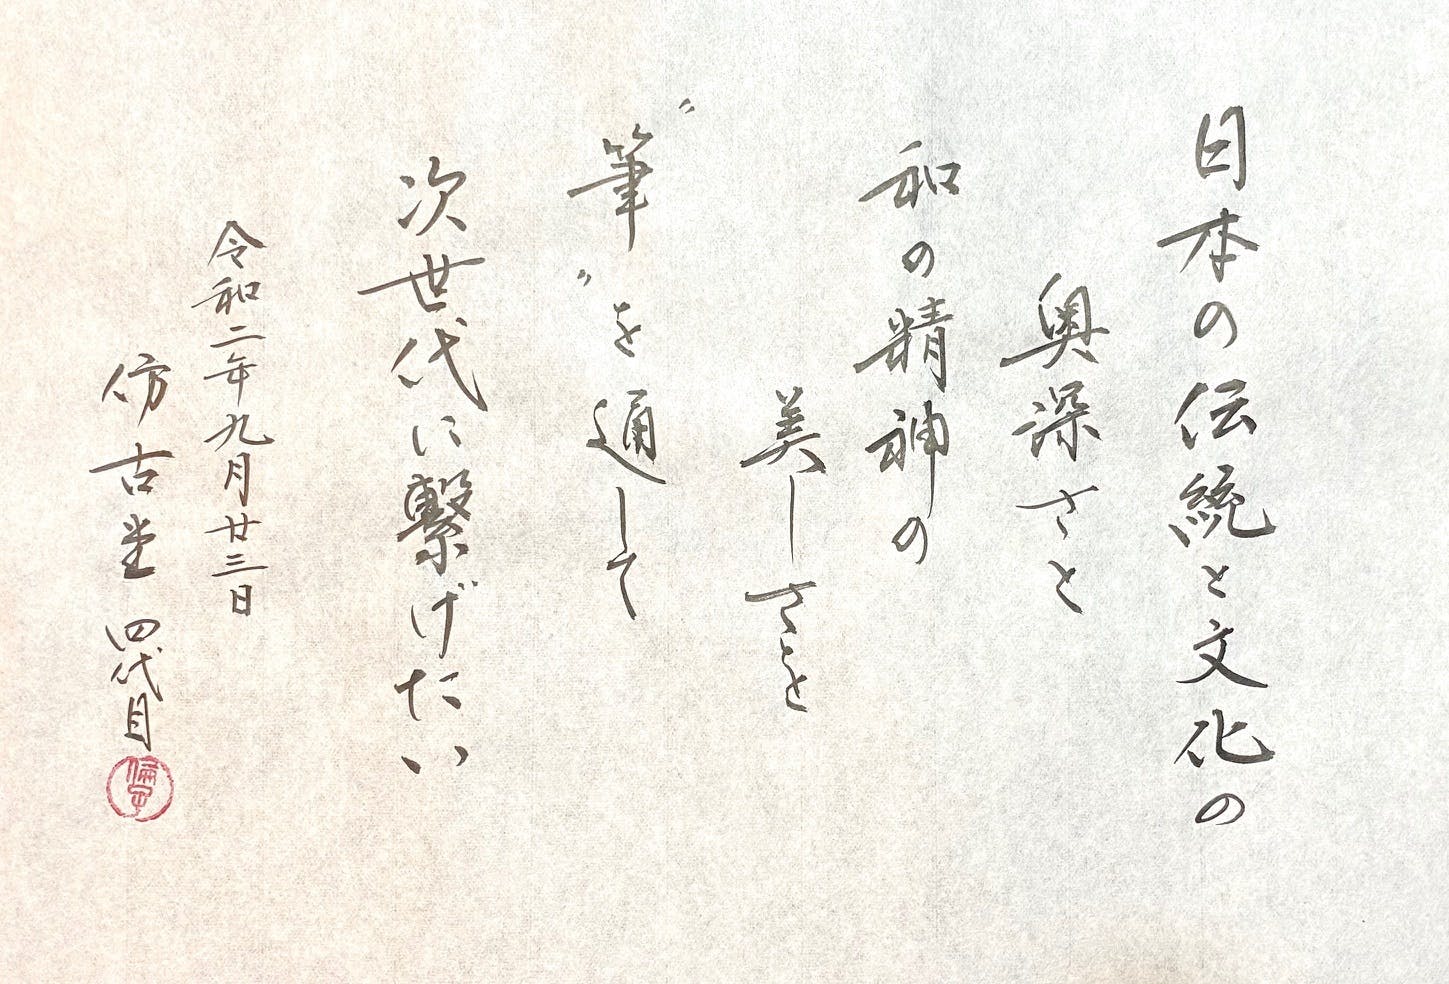 日本の伝統と文化の
奥深さと
和の精神の
美しさとを
〝筆〟を通して
次世代に繋げたい
令和二年九月廿三日
仿古堂 四代目